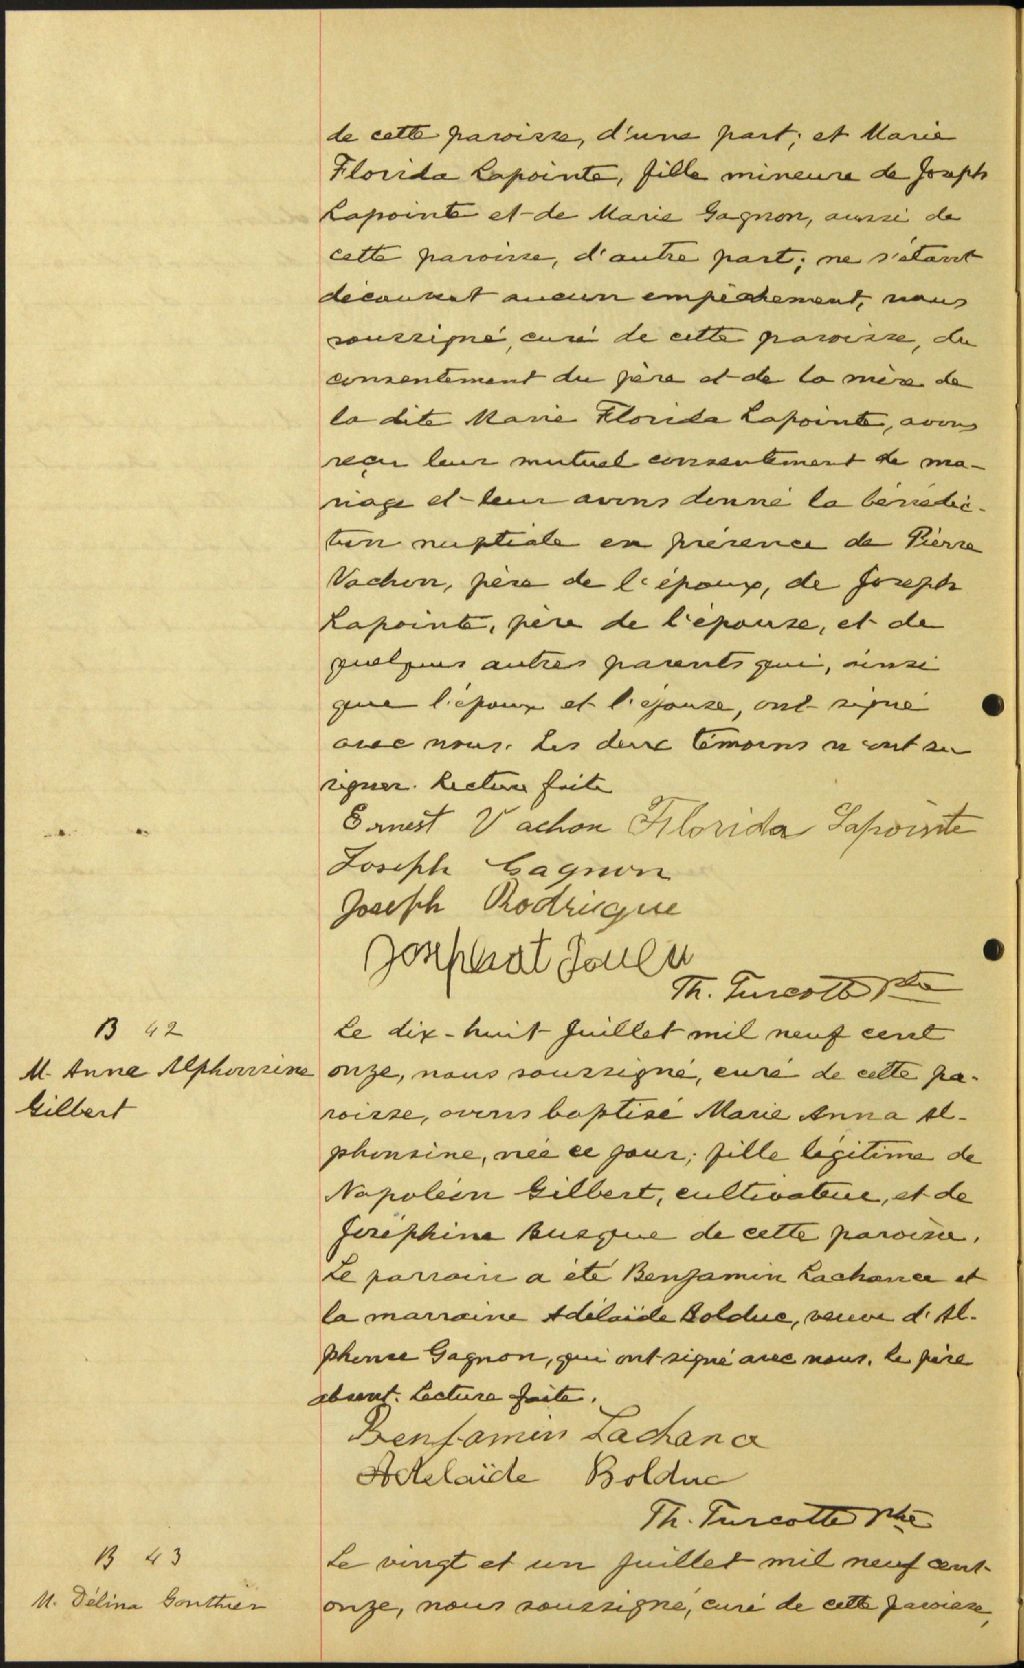 de cette paroisse, d'une part; et Marie
Florida Lapointe, fille mineure de Joseph
Lapointe et de Marie Gagnon, aussi de
cette paroisse, d'autre part; ne s'étant
découvert aucun empêchement, nous
soussigné, curé de cette paroisse, du
consentement du père et de la mère de
la dite Marie Florida Lapointe, avons
reçu leur mutuel consentement de ma-
riage et leur avons donné la bénédic-
tion nuptiale en présence de Pierre
Vachon, père de l'époux, de Joseph
Lapointe, père de l'épouse, et de
quelques autres parents qui, ainsi
que l'époux et l'épouse, ont signé
avec nous. Les deux témoins n'ont su
signer. Lecture faite
Ernest Vachon Florida Lapointe
Joseph Gagnon
Joseph Rodrigue
Josephat
Th. Turcotte Ptre
B 42
M. Anna Alphonsine
Gilbert
Le dix-huit Juillet mil neuf cent
onze, nous soussigné, curé de cette pa-
roisse, avons baptisé Marie Anna Al-
phonsine, née ce jour; fille légitime de
Napoléon Gilbert, cultivateur, et de
Joséphine Busque de cette paroisse.
Le parrain a été Benjamin Lachance et
la marraine Adélaïde Bolduc, veuve d'Al-
phonse Gagnon, qui ont signé avec nous. Le père
absent. Lecture faite.
Benjamin Lachance
Adelaïde Bolduc
Th. Turcotte Ptre
B 43
M. Délina Gonthier
Le vingt et un Juillet mil neuf cent
onze, nous soussigné, curé de cette paroisse,